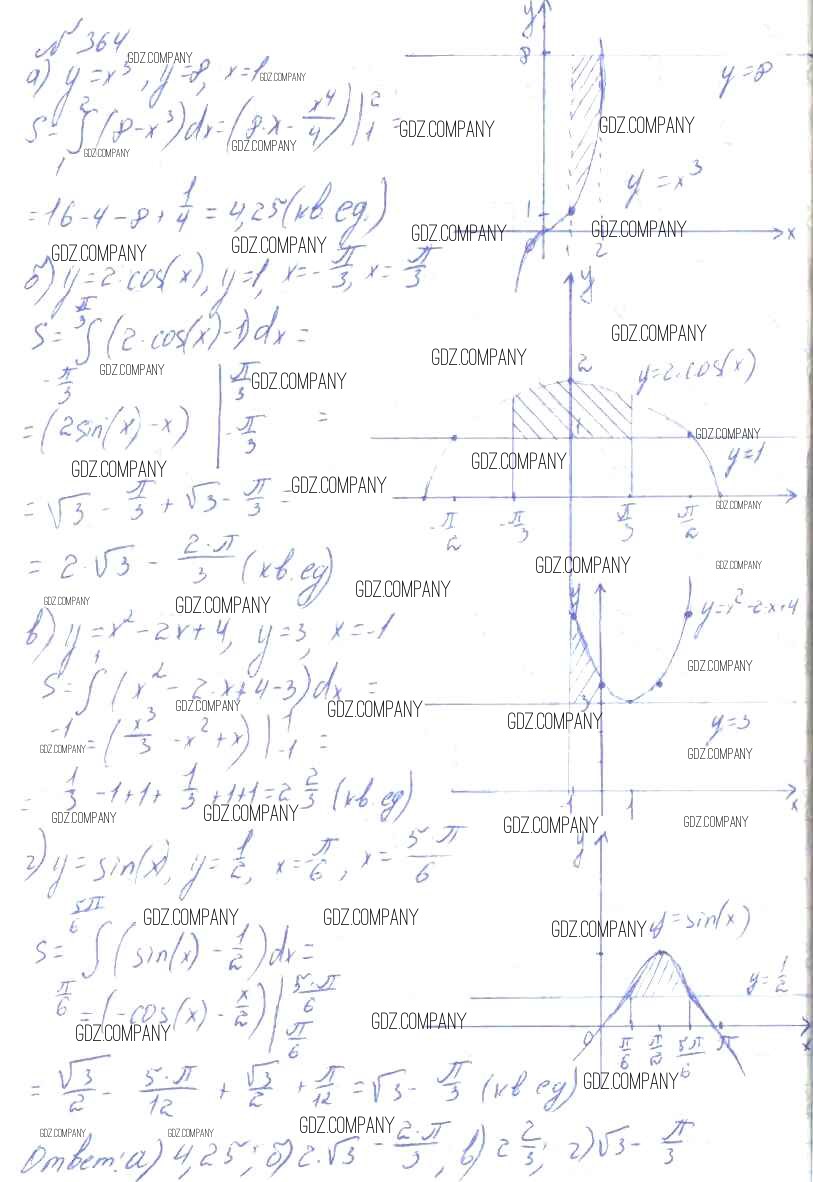 № 364
а) y = x³, y = 8, x = 1
S = ∫₁² (8 - x³) dx = (8·x - x⁴/4) |₁² =
= 16 - 4 - 8 + 1/4 = 4,25 (кв. ед.)
б) y = 2·cos(x), y = 1, x = -π/3, x = π/3
S = ∫_{-π/3}^{π/3} (2·cos(x) - 1) dx =
= (2sin(x) - x) |_{-π/3}^{π/3} =
= √3 - π/3 + √3 - π/3 =
= 2·√3 - 2·π/3 (кв. ед)
в) y = x² - 2x + 4, y = 3, x = -1
S = ∫₋₁¹ (x² - 2·x + 4 - 3) dx =
= (x³/3 - x² + x) |₋₁¹ =
= 1/3 - 1 + 1 + 1/3 + 1 + 1 = 2 2/3 (кв. ед)
г) y = sin(x), y = 1/2, x = π/6, x = 5·π/6
S = ∫_{π/6}^{5π/6} (sin(x) - 1/2) dx =
= (-cos(x) - x/2) |_{π/6}^{5·π/6}
= √3/2 - 5·π/12 + √3/2 + π/12 = √3 - π/3 (кв ед)
Ответ: а) 4,25; б) 2·√3 - 2·π/3, в) 2 2/3; г) √3 - π/3
y
8
y = 8
y = x³
1
2
x
y
2
y = 2·cos(x)
y = 1
-π/2
-π/3
π/3
π/2
y
y = x² - 2·x + 4
3
y = 3
-1
1
x
y
y = sin(x)
y = 1/2
0
π/6
π/2
5π/6
π
x
GDZ.COMPANY